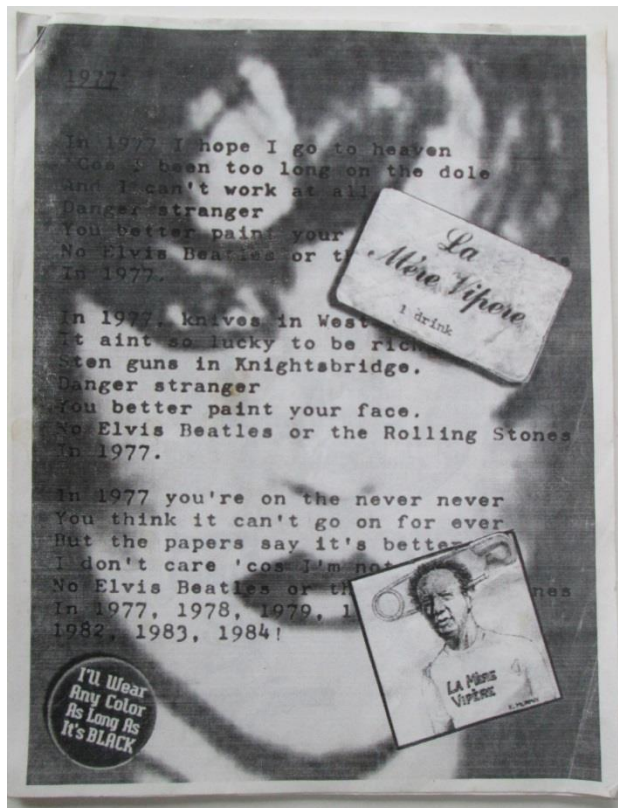 1977
In 1977 I hope I go to heaven
'Cos I been too long on the dole
And I can't work at all
Danger stranger
You better paint your
No Elvis Beatles or
In 1977.
In 1977, knives in West
It aint so lucky to be rich
Sten guns in Knightsbridge.
Danger stranger
You better paint your face.
No Elvis Beatles or the Rolling Stones
In 1977.
In 1977 you're on the never never
You think it can't go on for ever
But the papers say it's better
I don't care 'cos I'm not
No Elvis Beatles or
In 1977, 1978, 1979,
1982, 1983, 1984!
La
Mère Vipere
1 drink
LA MÈRE
VIPÈRE
I'll Wear
Any Color
As Long As
It's BLACK